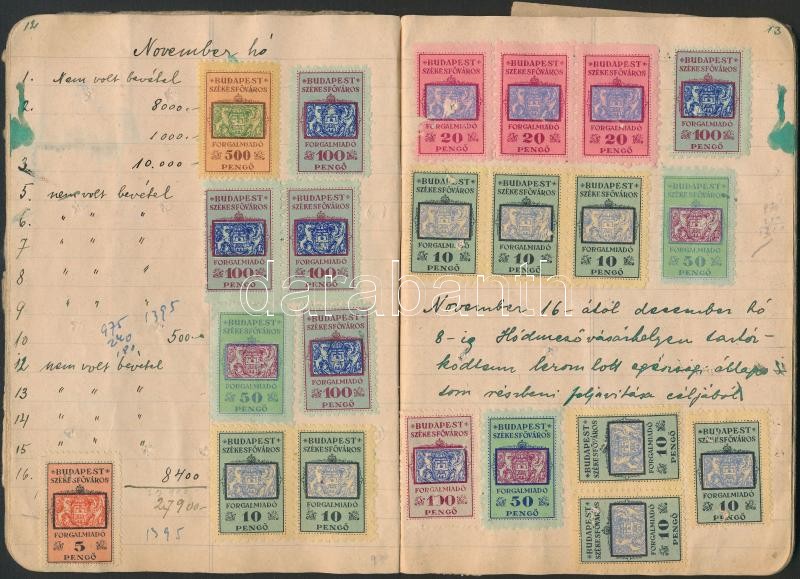 12
November hó
1. Nem volt bevétel
2. 8000.-
1000.-
3 10.000.-
5 nem volt bevétel
6. " " "
7 " " "
8 " " "
9 " " "
10 500.-
975 1395
240
12 nem volt bevétel
13 " " "
14 " " "
15 " " "
16. 8400
27900-
1395
BUDAPEST
SZÉKESFŐVÁROS
FORGALMIADÓ
500
PENGŐ
BUDAPEST
SZÉKESFŐVÁROS
FORGALMIADÓ
100
PENGŐ
BUDAPEST
SZÉKESFŐVÁROS
FORGALMIADÓ
100
PENGŐ
BUDAPEST
SZÉKESFŐVÁROS
FORGALMIADÓ
100
PENGŐ
BUDAPEST
SZÉKESFŐVÁROS
FORGALMIADÓ
50
PENGŐ
BUDAPEST
SZÉKESFŐVÁROS
FORGALMIADÓ
100
PENGŐ
BUDAPEST
SZÉKESFŐVÁROS
FORGALMIADÓ
10
PENGŐ
BUDAPEST
SZÉKESFŐVÁROS
FORGALMIADÓ
10
PENGŐ
BUDAPEST
SZÉKESFŐVÁROS
FORGALMIADÓ
5
PENGŐ
13
BUDAPEST
SZÉKESFŐVÁROS
FORGALMIADÓ
20
PENGŐ
BUDAPEST
SZÉKESFŐVÁROS
FORGALMIADÓ
20
PENGŐ
BUDAPEST
SZÉKESFŐVÁROS
FORGALMIADÓ
20
PENGŐ
BUDAPEST
SZÉKESFŐVÁROS
FORGALMIADÓ
100
PENGŐ
BUDAPEST
SZÉKESFŐVÁROS
FORGALMIADÓ
10
PENGŐ
BUDAPEST
SZÉKESFŐVÁROS
FORGALMIADÓ
10
PENGŐ
BUDAPEST
SZÉKESFŐVÁROS
FORGALMIADÓ
10
PENGŐ
BUDAPEST
SZÉKESFŐVÁROS
FORGALMIADÓ
50
PENGŐ
darabanth
November 16. ától december hó
8-ig Hódmezővásárhelyen tartóz-
kodtam leromlott egészségi állapo
tom részbeni feljavítása céljából
BUDAPEST
SZÉKESFŐVÁROS
FORGALMIADÓ
100
PENGŐ
BUDAPEST
SZÉKESFŐVÁROS
FORGALMIADÓ
50
PENGŐ
BUDAPEST
SZÉKESFŐVÁROS
FORGALMIADÓ
10
PENGŐ
BUDAPEST
SZÉKESFŐVÁROS
FORGALMIADÓ
10
PENGŐ
BUDAPEST
SZÉKESFŐVÁROS
FORGALMIADÓ
10
PENGŐ